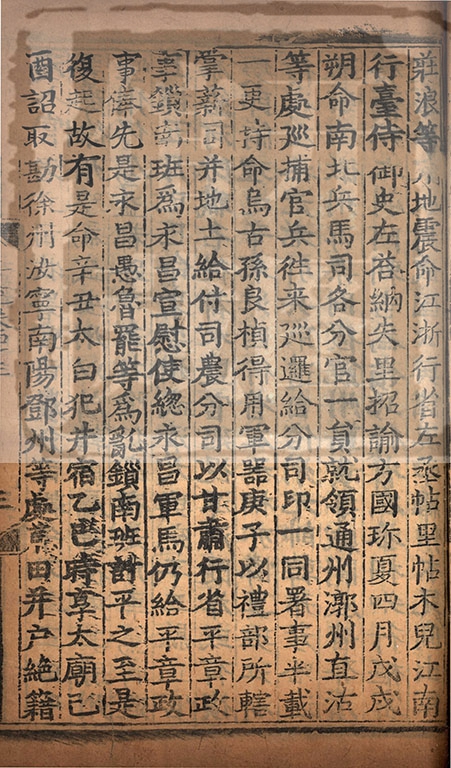 莊浪等地震命江浙行省左丞帖里帖木兒江南
行臺侍御史左荅納失里招諭方國珎夏四月戊戌
朔命南北兵馬司各分官一員就領通州漷州直沽
等處廵捕官兵徃来廵邏給分司印一同署事半載
一更持命烏古孫良楨得用軍器庚子以禮部所轄
掌薪司并地土給付司農分司以甘肅行省平章政
事鎖南班爲永昌宣慰使緫永昌軍馬仍給平章政
事俸先是永昌愚魯罷等爲亂鎖南班討平之至是
復起故有是命辛丑太白犯井宿乙巳時享太廟己
酉詔取勘徐州汝寧南陽鄧州等處荒田并户絶籍